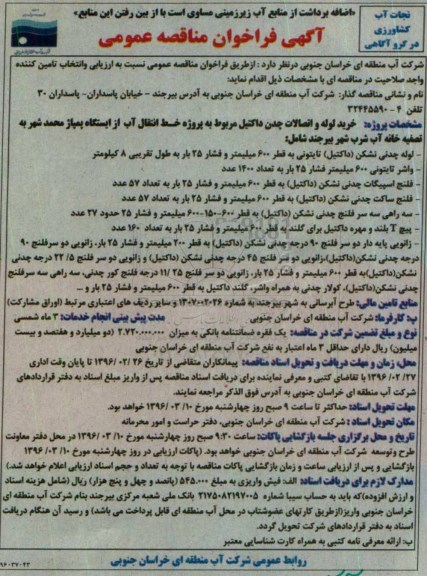 نجات آب
کشاورزی
در گرو آگاهی
«اضافه برداشت از منابع آب زیرزمینی مساوی است با از بین رفتن این منابع»
آگهی فراخوان مناقصه عمومی
شرکت آب منطقه ای خراسان جنوبی درنظر دارد : ازطریق فراخوان مناقصه عمومی نسبت به ارزیابی وانتخاب تامین کننده
واجد صلاحیت در مناقصه ای با مشخصات ذیل اقدام نماید:
نام و نشانی مناقصه گذار: شرکت آب منطقه ای خراسان جنوبی به آدرس بیرجند - خیابان پاسداران- پاسداران ۳۰
تلفن ۴ - ۳۲۴۴۵۵۹۰
مشخصات پروژه: خرید لوله و اتصالات چدن داکتیل مربوط به پروژه خط انتقال آب از ایستگاه پمپاژ محمد شهر به
تصفیه خانه آب شرب شهر بیرجند شامل:
- لوله چدنی نشکن (داکتیل) تایتونی به قطر ۶۰۰ میلیمتر و فشار ۲۵ بار به طول تقریبی ۸ کیلومتر
- واشر تایتونی ۶۰۰ میلیمتر فشار ۲۵ بار به تعداد ۱۴۰۰ عدد
- فلنج اسپیگات چدنی نشکن (داکتیل) به قطر ۶۰۰ میلیمتر و فشار ۲۵ بار به تعداد ۵۷ عدد
- فلنج ساکت چدنی نشکن (داکتیل) به قطر ۶۰۰ میلیمتر و فشار ۲۵ بار به تعداد ۵۷ عدد
- سه راهی سه سر فلنج چدنی نشکن (داکتیل) به قطر ۶۰۰-۱۵۰-۶۰۰ میلیمتر و فشار ۲۵ حدود ۳۷ عدد
- پیچ ۲ بلند و مهره داکتیل برای گلند به قطر ۶۰۰ میلیمتر و فشار ۲۵ بار به تعداد ۱۶۰ عدد
- زانویی پایه دار دو سر فلنج ۹۰ درجه چدنی نشکن (داکتیل) به قطر ۲۰۰ میلیمتر و فشار ۲۵ بار، زانویی دو سرفلنج ۹۰
درجه چدنی نشکن (داکتیل)،زانویی دو سر فلنج ۴۵ درجه چدنی نشکن (داکتیل) و زانویی دو سر فلنج ۲۲/۵ درجه چدنی
نشکن(داکتیل)به قطر ۶۰۰ میلیمتر و فشار ۲۵ بار، زانویی دو سر فلنج ۱۱/۲۵ درجه فلنج کور چدنی، سه راهی سه سرفلنج
چدنی نشکن (داکتیل)، کولار چدنی به همراه واشر، گلند داکتیل به قطر ۶۰۰ میلیمتر و فشار ۲۵ بار و ...
منابع تامین مالی: طرح آبرسانی به شهر بیرجند به شماره ۱۳۰۷۰۰۲۰۲۶ و سایر ردیف های اعتباری مرتبط (اوراق مشارکت)
ب: کارفرما: شرکت آب منطقه ای خراسان جنوبی مدت پیش بینی انجام خدمات: ۳ ماه شمسی
نوع و مبلغ تضمین شرکت در مناقصه: یک فقره ضمانتنامه بانکی به میزان ۲.۷۲۰.۰۰۰.۰۰۰ (دو میلیارد و هفتصد و بیست
میلیون) ریال دارای حداقل ۳ ماه اعتبار به نفع شرکت آب منطقه ای خراسان جنوبی
محل، زمان و مهلت دریافت و تحویل اسناد مناقصه: پیمانکاران متقاضی از تاریخ ۱۳۹۶/۰۲/۲۶ تا پایان وقت اداری
۱۳۹۶/۰۲/۲۷ با تقاضای کتبی و معرفی نماینده برای دریافت اسناد مناقصه پس از واریز مبلغ اسناد به دفتر قراردادهای
شرکت آب منطقه ای خراسان جنوبی به آدرس فوق الذکر مراجعه نمایند.
مهلت تحویل اسناد: حداکثر تا ساعت ۹ صبح روز چهارشنبه مورخ ۱۳۹۶/۰۳/۱۰ خواهد بود.
مکان تحویل اسناد: شرکت آب منطقه ای خراسان جنوبی، دفتر حراست و امور محرمانه
تاریخ و محل برگزاری جلسه بازگشایی پاکات: ساعت ۹:۳۰ صبح روز چهارشنبه مورخ ۱۳۹۶/۰۳/۱۰ در محل دفتر معاونت
طرح وتوسعه شرکت آب منطقه ای خراسان جنوبی خواهد بود. (پاکات ارزیابی در روز چهارشنبه مورخ ۱۳۹۶/۰۳/۱۰
بازگشایی و پس از ارزیابی ساعت و زمان بازگشایی پاکات مناقصه با توجه به تعداد و حجم اسناد ارزیابی اعلام خواهد شد.)
مدارک لازم برای دریافت اسناد: الف: فیش واریزی به مبلغ ۵۴۵.۰۰۰ (پانصد و چهل و پنج هزار) ریال (شامل هزینه اسناد
و ارزش افزوده)که باید به حساب سیبا شماره ۲۱۷۵۰۸۲۱۹۷۰۰۵ بانک ملی شعبه مرکزی بیرجند بنام شرکت آب منطقه ای
خراسان جنوبی واریز(ازطریق کارتهای عضوشتاب در محل آب منطقه ای قابل پرداخت می باشد) و رسید آن هنگام دریافت
اسناد به دفتر قراردادهای شرکت تحویل گردد.
ب: ارائه معرفی نامه کتبی به همراه کارت شناسایی معتبر
روابط عمومی شرکت آب منطقه ای خراسان جنوبی